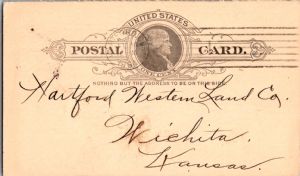 UNITED STATES
POSTAL CARD.
ONE CENT
NOTHING BUT THE ADDRESS TO BE ON THIS SIDE.
Hartford Western Land Co.
Wichita.
Kansas.